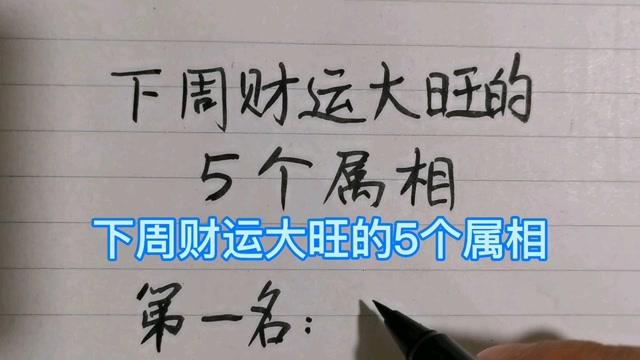 下周财运大旺的
5个属相
下周财运大旺的5个属相
第一名：